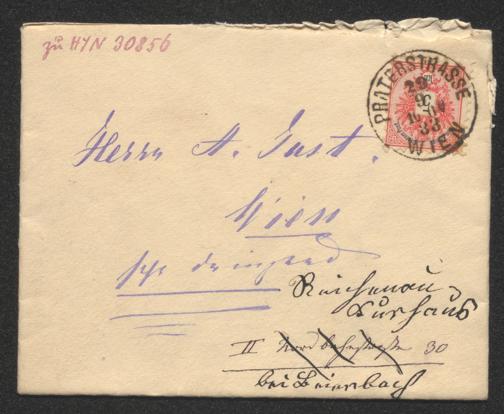 zu HYN 30856
PRATERSTRASSE
WIEN
Herrn A. Just.
Wien
sehr dringend
Reichenau
Kurhaus
II Nordbahnstraße 30
bei Beierbach